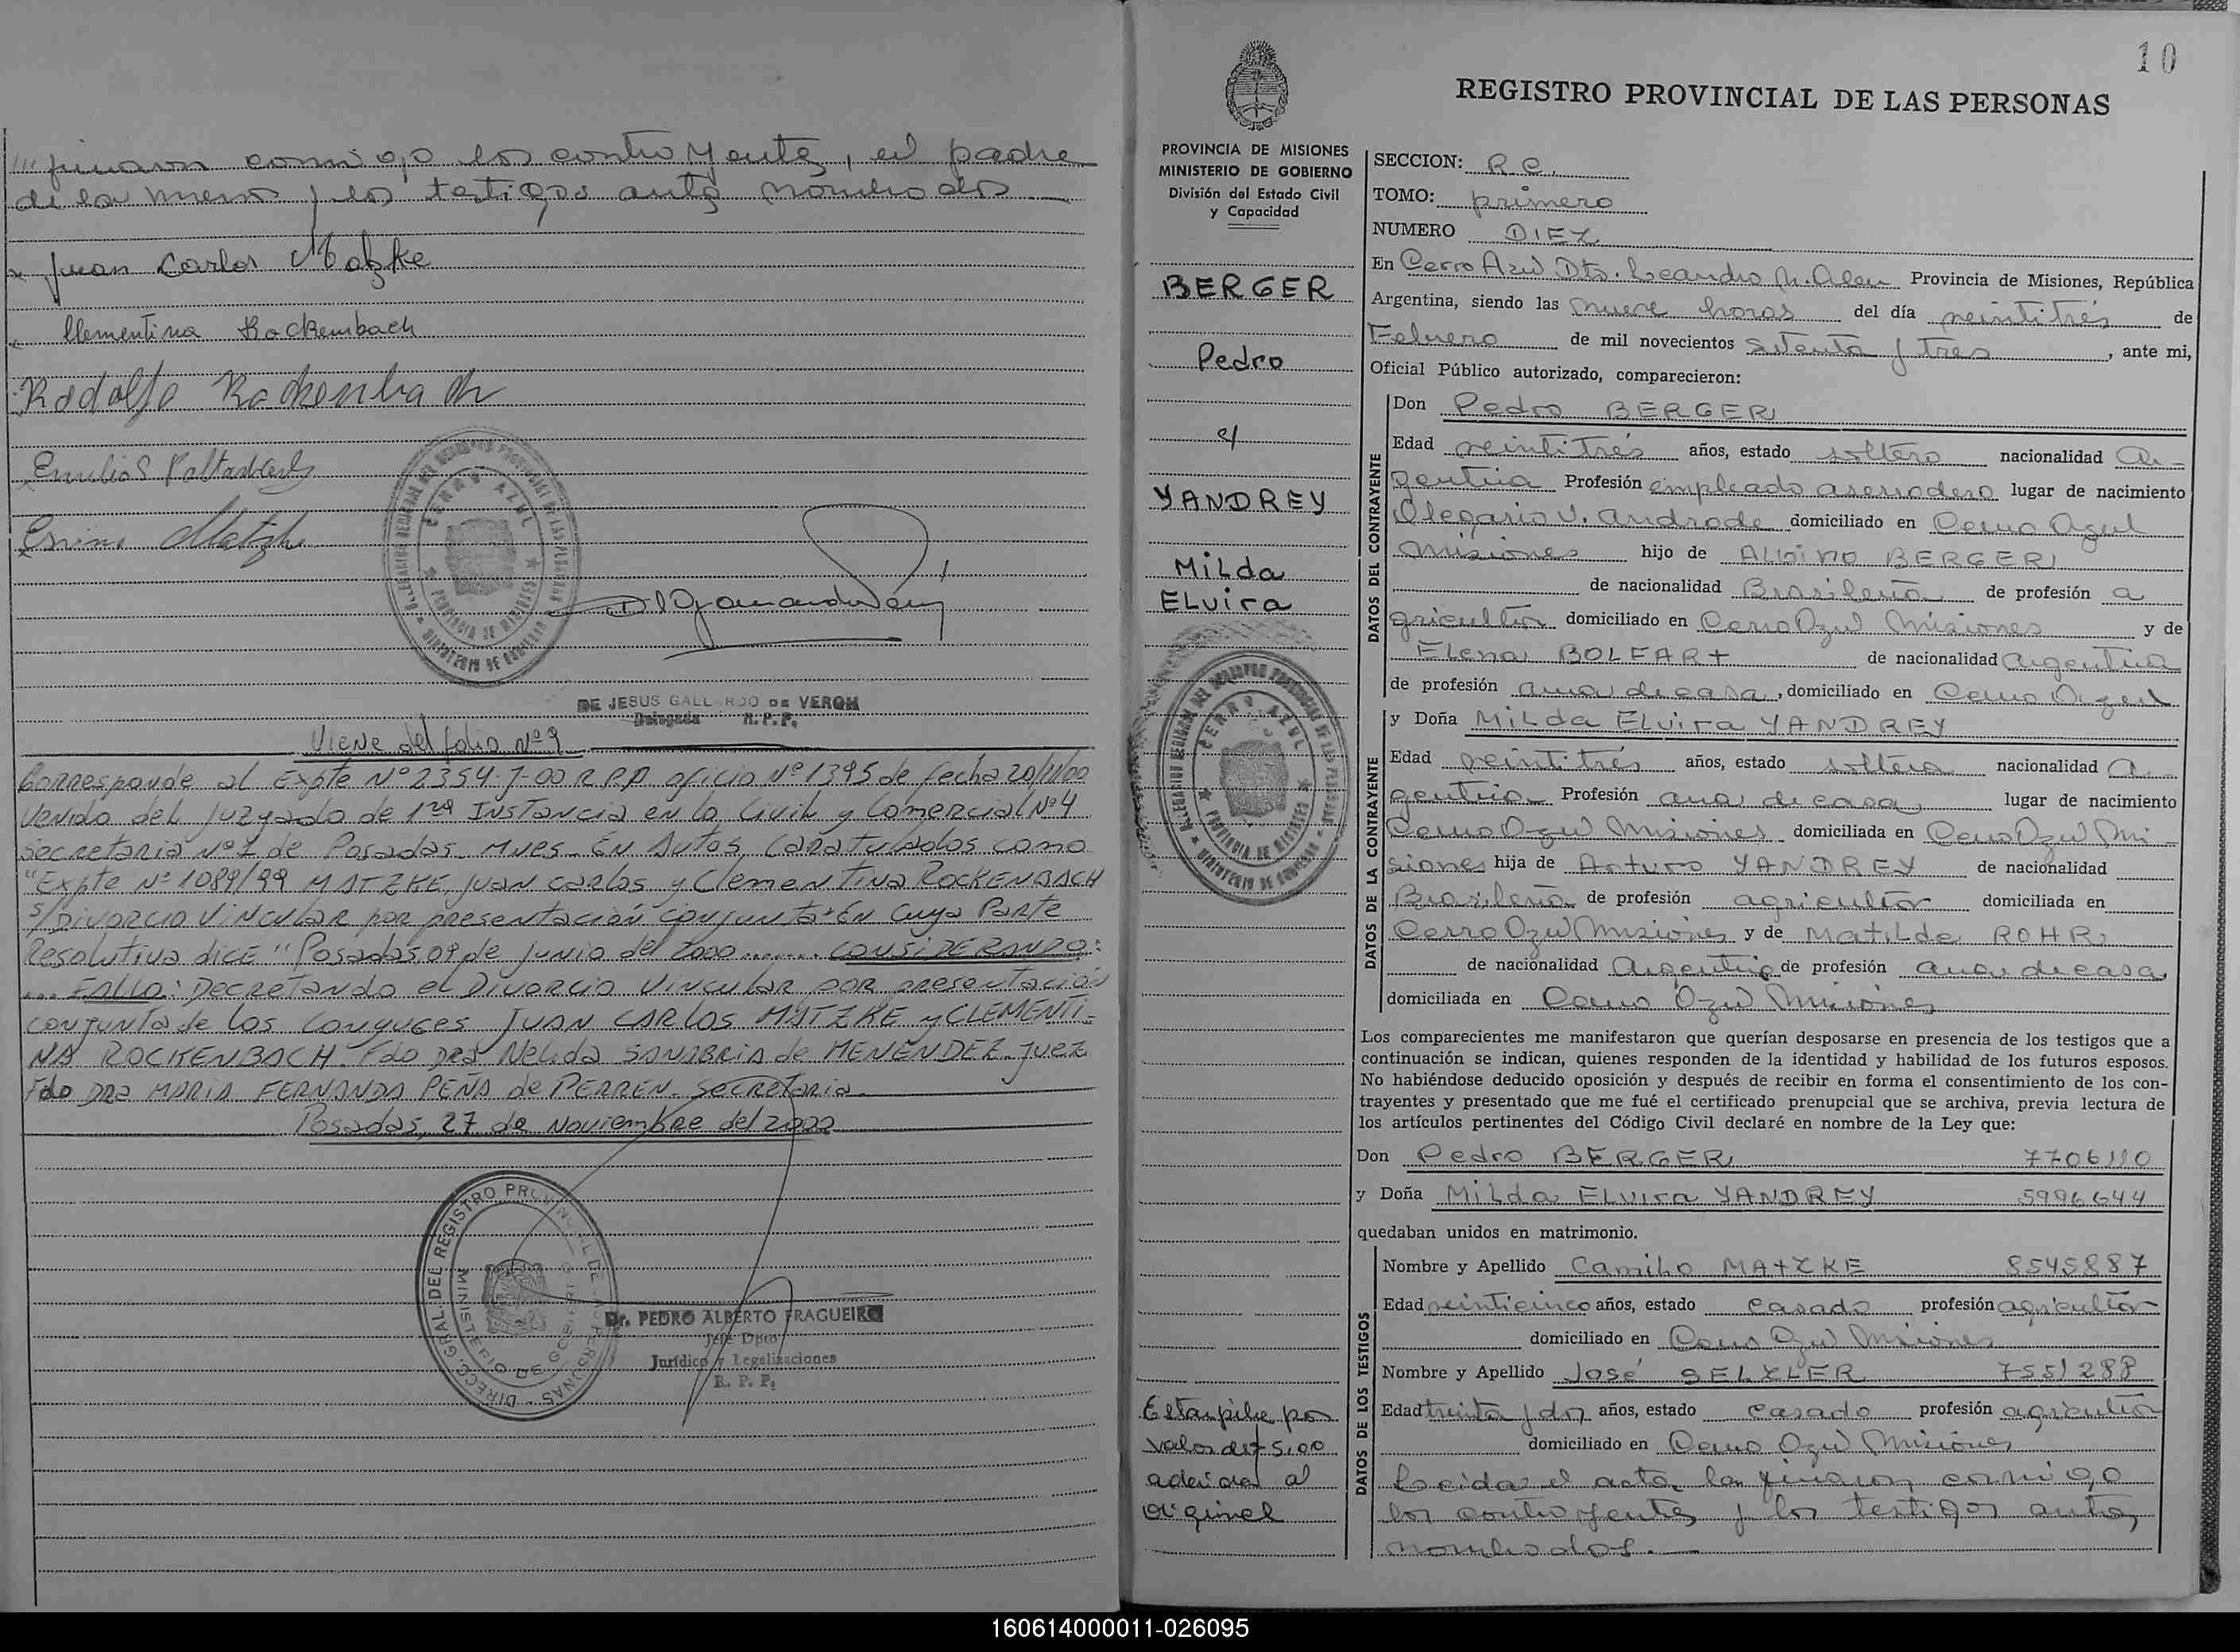 /// firman conmigo los contrayentes, el padre
de la menor y los testigos antes nombrados
Juan Carlos Matzke
Clementina Rockembach
Rodolfo Rockenbach
Erino Matzke
DE JESUS GALLARDO DE VERON
Delegada R.P.P.
Viene del folio Nº 9
Corresponde al Expte Nº 2354-J-00 R.P.P. oficio Nº 1395 de fecha 20/11/00
Venido del Juzgado de 1ra Instancia en lo Civil y Comercial Nº 4
Secretaria Nº 1 de Posadas. Mnes. En Autos Caratulados como
"Expte Nº 1089/99 MATZKE, Juan Carlos y Clementina ROCKENBACH
s/Divorcio Vincular por presentación conjunta" En Cuya Parte
Resolutiva dice "Posadas 09 de Junio del 2000 ....... CONSIDERANDO:
... FALLO: Decretando el Divorcio Vincular por presentación
conjunta de los conyuges JUAN CARLOS MATZKE y CLEMENTI-
NA ROCKENBACH. Fdo Dra Nelida SANABRIA de MENENDEZ. Juez
Fdo Dra MARIA FERNANDA PEÑA de PERREN. Secretaria
Posadas, 27 de Noviembre del 2000
Dr. PEDRO ALBERTO FRAGUEIRO
Jefe Dpto
Jurídico y Legalizaciones
R. P. P.
10
REGISTRO PROVINCIAL DE LAS PERSONAS
PROVINCIA DE MISIONES
MINISTERIO DE GOBIERNO
División del Estado Civil
y Capacidad
BERGER
Pedro
c/
YANDREY
Milda
ELvira
CERRO AZUL
Estampilla por
valor de $ 5,00
adherida al
original
SECCION: R.C.
TOMO: primero
NUMERO DIEZ
En Cerro Azul Dto. Leandro N. Alem Provincia de Misiones, República
Argentina, siendo las nueve horas del día veintitrés de
Febrero de mil novecientos setenta y tres, ante mi,
Oficial Público autorizado, comparecieron:
DATOS DEL CONTRAYENTE
Don Pedro BERGER
Edad veintitrés años, estado soltero nacionalidad Ar-
gentina Profesión empleado aserradero lugar de nacimiento
Olegario V. Andrade domiciliado en Cerro Azul
Misiones hijo de Albino BERGER
de nacionalidad Brasileña de profesión a
gricultor domiciliado en Cerro Azul Misiones y de
Elena BOLFART de nacionalidad Argentina
de profesión ama de casa, domiciliado en Cerro Azul
DATOS DE LA CONTRAYENTE
y Doña Milda Elvira YANDREY
Edad veintitrés años, estado soltera nacionalidad Ar-
gentina Profesión ama de casa, lugar de nacimiento
Cerro Azul Misiones domiciliada en Cerro Azul Mi
siones hija de Arturo YANDREY de nacionalidad
Brasileña de profesión agricultor domiciliada en
Cerro Azul Misiones y de Matilde ROHR
de nacionalidad Argentina de profesión ama de casa
domiciliada en Cerro Azul Misiones
Los comparecientes me manifestaron que querían desposarse en presencia de los testigos que a
continuación se indican, quienes responden de la identidad y habilidad de los futuros esposos.
No habiéndose deducido oposición y después de recibir en forma el consentimiento de los con-
trayentes y presentado que me fué el certificado prenupcial que se archiva, previa lectura de
los artículos pertinentes del Código Civil declaré en nombre de la Ley que:
Don Pedro BERGER 7706110
y Doña Milda ELvira YANDREY 5996644
quedaban unidos en matrimonio.
DATOS DE LOS TESTIGOS
Nombre y Apellido Camilo MATZKE 8545887
Edad veinticinco años, estado casado profesión agricultor
domiciliado en Cerro Azul Misiones
Nombre y Apellido José SELZLER 7551288
Edad treinta y dos años, estado casado profesión agricultor
domiciliado en Cerro Azul Misiones
Leída el acta la firman conmigo
los contrayentes y los testigos antes
nombrados.
160614000011-026095